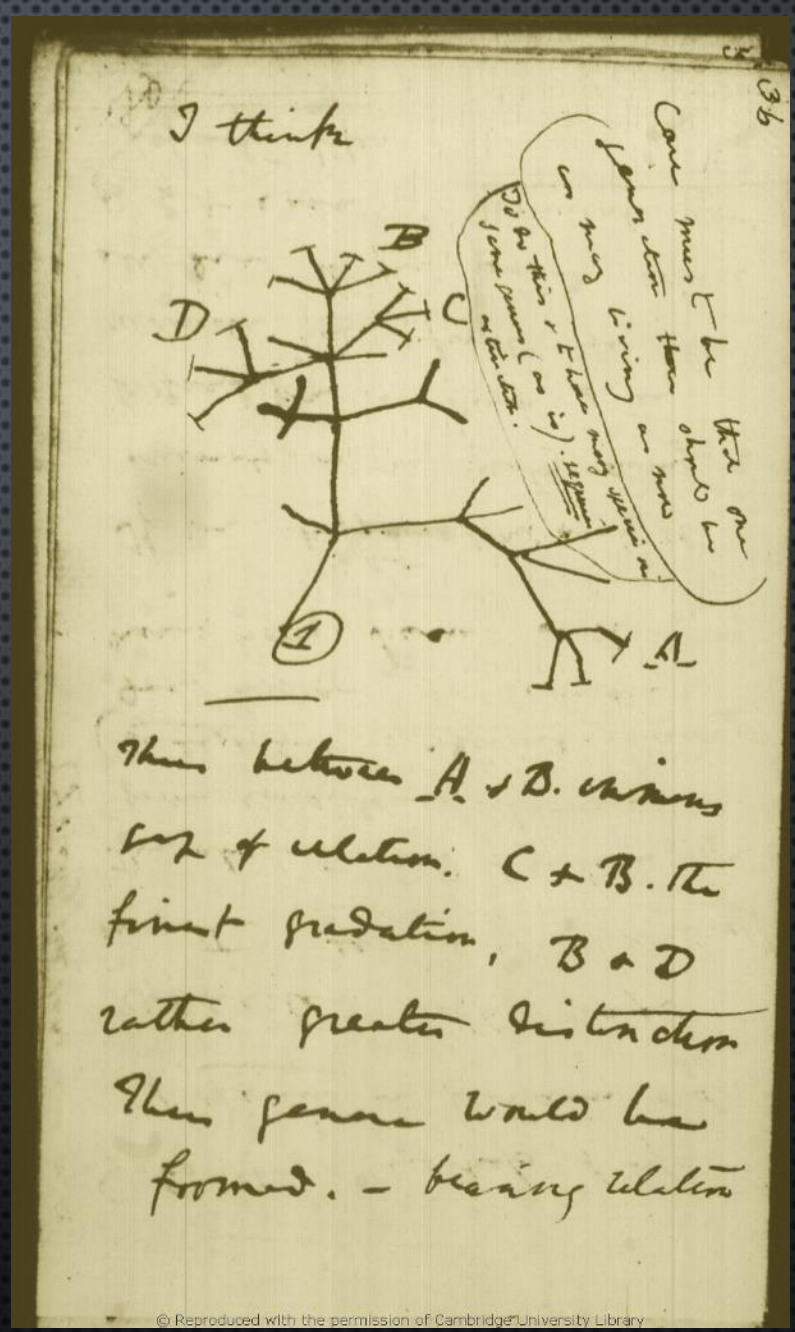 I think
36
Case must be that one
generation then should be
as many living as now
To do this & to have many species in
same genus (as is). requires
extinction.
B
C
D
A
1
Thus between A & B. immens
gap of relation. C & B. the
finest gradation, B & D
rather greater distinction
Thus genera would be
formed. — bearing relation
© Reproduced with the permission of Cambridge University Library